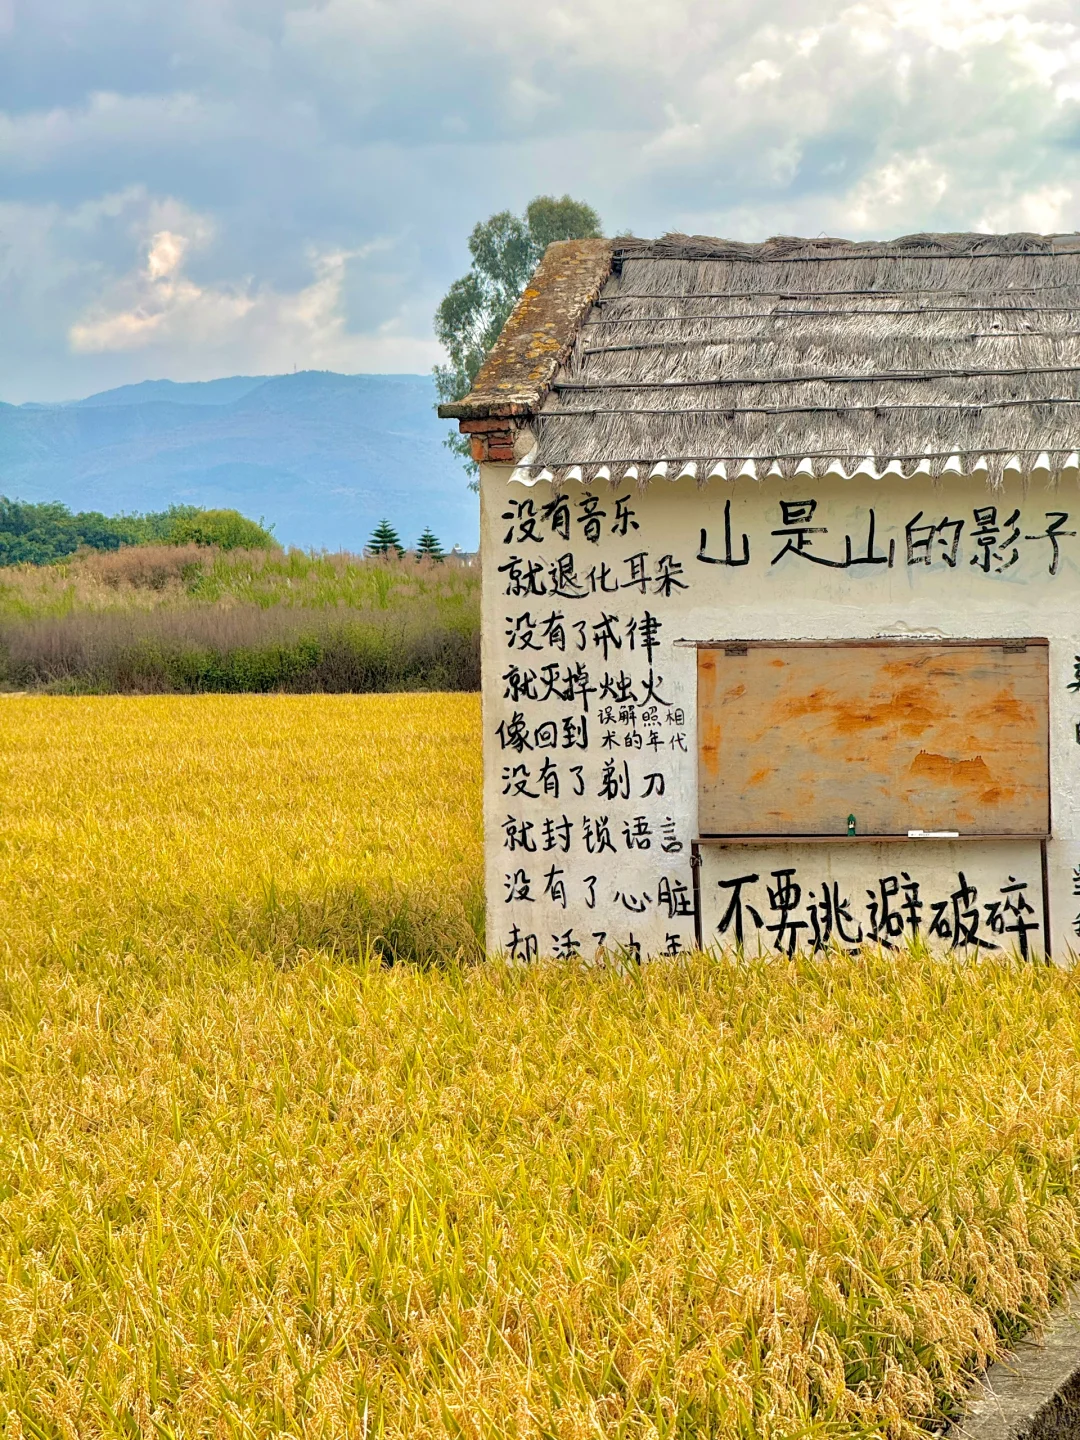 没有音乐
就退化耳朵
没有了戒律
就灭掉烛火
像回到 误解照相
术的年代
没有了剃刀
就封锁语言
没有了心脏
却活了九年
山是山的影子
不要逃避破碎